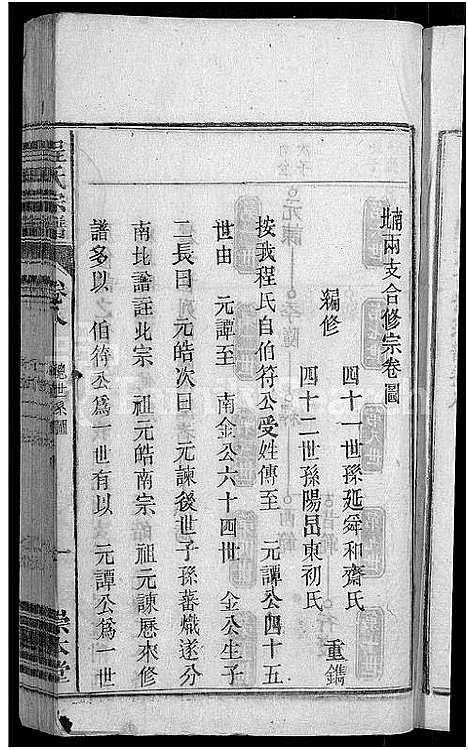 南北兩支合修宗卷圖
四十一世孫延舜和齋氏
編修
四十二世孫陽昌東初氏
重鐫
按我程氏自伯符公受姓傳至 元譚公四十五
世由 元譚至 南金公六十四世 金公生子
二長曰 元皓次曰 元諫後世子孫蕃熾遂分
南北譜註北宗 祖元皓南宗 祖元諫歷來修
譜多以 伯符公爲一世有以 元譚公爲一世
程氏宗譜
卷八
統世系圖
一
崇本堂